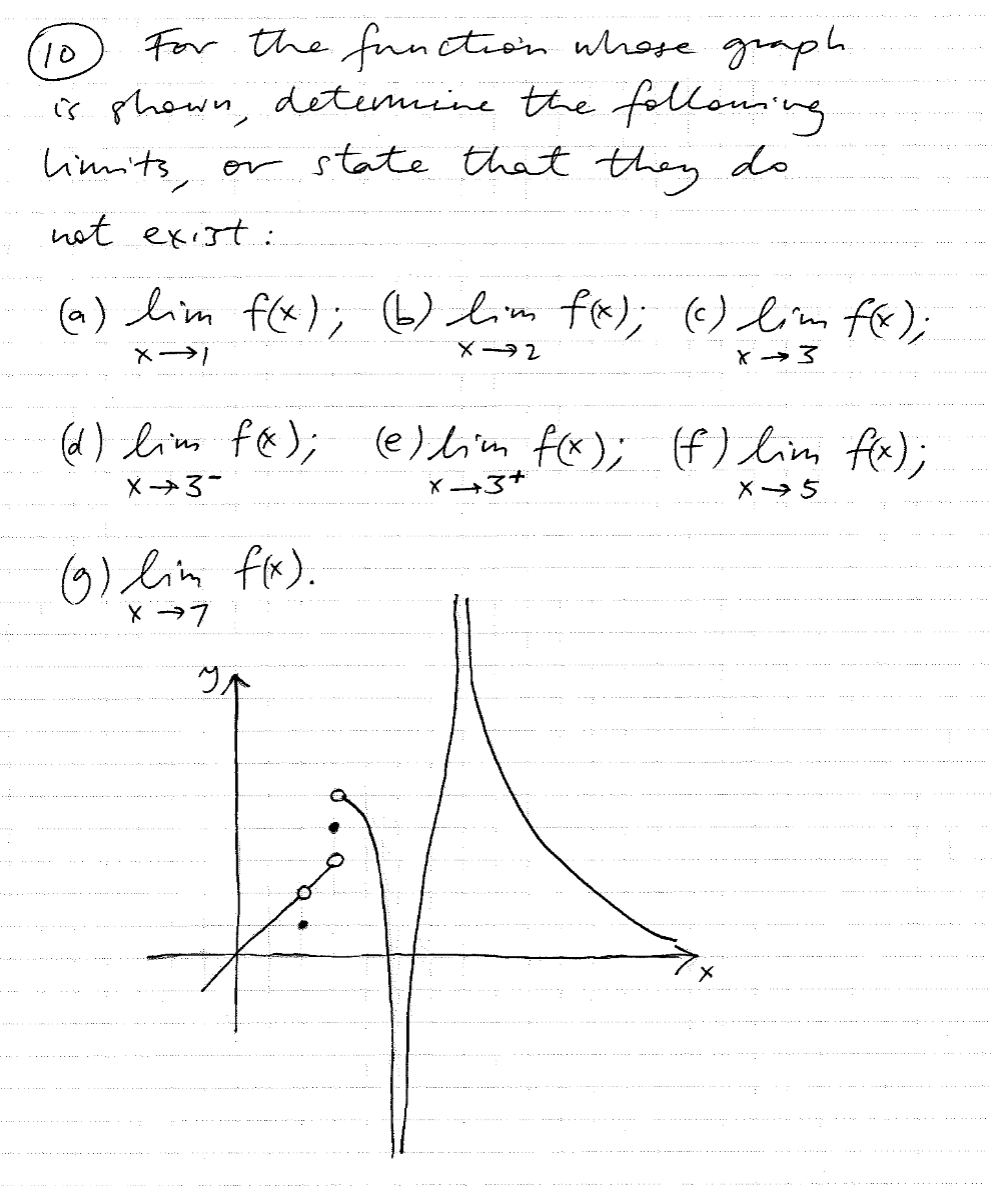 (10) For the function whose graph
is shown, determine the following
limits, or state that they do
not exist:
(a) lim f(x); (b) lim f(x); (c) lim f(x);
x→1 x→2 x→3
(d) lim f(x); (e) lim f(x); (f) lim f(x);
x→3⁻ x→3⁺ x→5
(g) lim f(x).
x→7
y
x